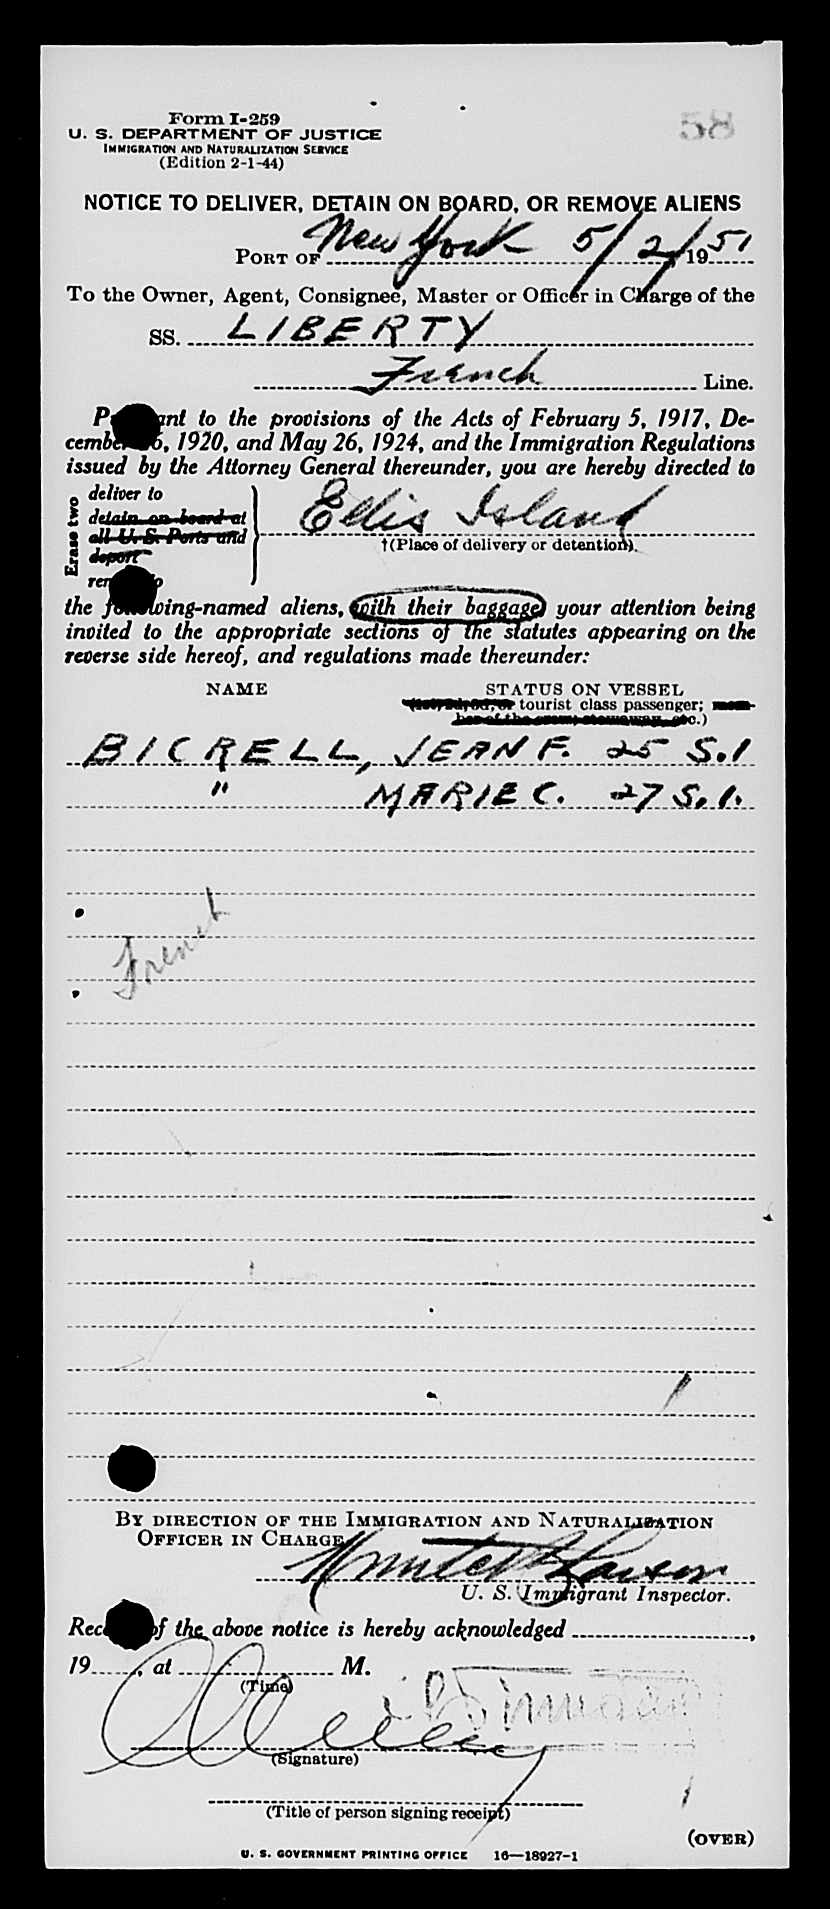 Form I-259
58
U. S. DEPARTMENT OF JUSTICE
IMMIGRATION AND NATURALIZATION SERVICE
(Edition 2-1-44)
NOTICE TO DELIVER, DETAIN ON BOARD, OR REMOVE ALIENS
PORT OF New York 5/2/1951
To the Owner, Agent, Consignee, Master or Officer in Charge of the
SS. LIBERTY
French Line.
P ant to the provisions of the Acts of February 5, 1917, De-
cember 6, 1920, and May 26, 1924, and the Immigration Regulations
issued by the Attorney General thereunder, you are hereby directed to
Erase two
deliver to
detain on board at
all U. S. Ports and
deport
rem o
Ellis Island
†(Place of delivery or detention).
the following-named aliens, with their baggage, your attention being
invited to the appropriate sections of the statutes appearing on the
reverse side hereof, and regulations made thereunder:
NAME STATUS ON VESSEL
tourist class passenger; mem-
ber of the crew; stowaway, etc.)
BICRELL, JEAN F. 25 S.I
" MARIE C. 27 S.I.
French
BY DIRECTION OF THE IMMIGRATION AND NATURALIZATION
OFFICER IN CHARGE
U. S. Immigrant Inspector.
Rec of the above notice is hereby acknowledged ,
19 , at M.
(Time)
(Signature)
(Title of person signing receipt)
(OVER)
U. S. GOVERNMENT PRINTING OFFICE 16—18927-1